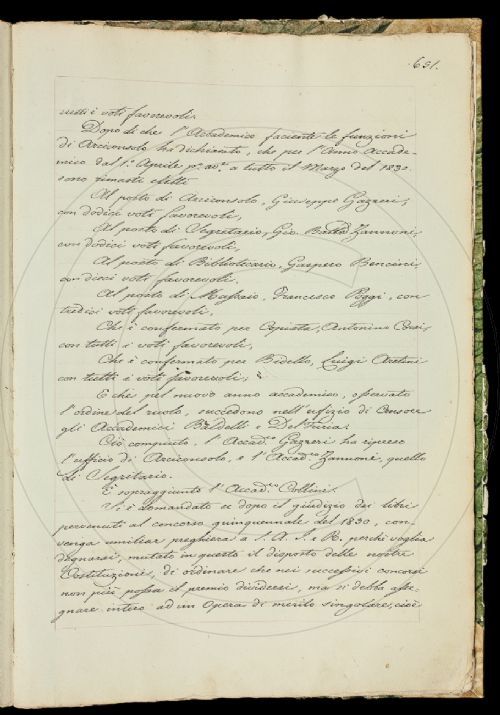 691.
tutti i voti favorevoli.
Dopo di che l'Accademico facente le funzioni
di Arciconsolo ha dichiarato, che per l'Anno Accade-
mico dal 1.º Aprile p.º av.º a tutto il Marzo del 1830.
sono rimasti eletti
Al posto di Arciconsolo, Giuseppe Gazzeri,
con dodici voti favorevoli,
Al posto di Segretario, Gio. Batta Zannoni,
con dodici voti favorevoli,
Al posto di Bibliotecario, Gaspero Bencini
con dieci voti favorevoli.
Al posto di Massaio, Francesco Poggi, con
tredici voti favorevoli,
Che è confermato per Copista, Antonino
con tutti i voti favorevoli,
Che è confermato per Bidello, Luigi
con tutti i voti favorevoli;
E che pel nuovo anno accademico, osservato
l'ordine del ruolo, succedono nell'ufizio di Censore
gli Accademici Baldelli e Del Furia.
Ciò compiuto, l'Accad.co Gazzeri ha ripreso
l'ufficio di Arciconsolo, e l'Accad.co Zannoni, quello
di Segretario.
È sopraggiunto l'Accad.co Collini.
Si è domandato se dopo il giudizio dei libri
pervenuti al concorso quinquennale del 1830, con-
venga umiliar preghiera a S. A. I. e R. perchè voglia
degnarsi, mutato in questo il disposto delle nostre
Costituzioni, di ordinare che nei successivi concorsi
non più possa il premio dividersi, ma si debba asse-
gnare intero ad un Opera di merito singolare, cioè